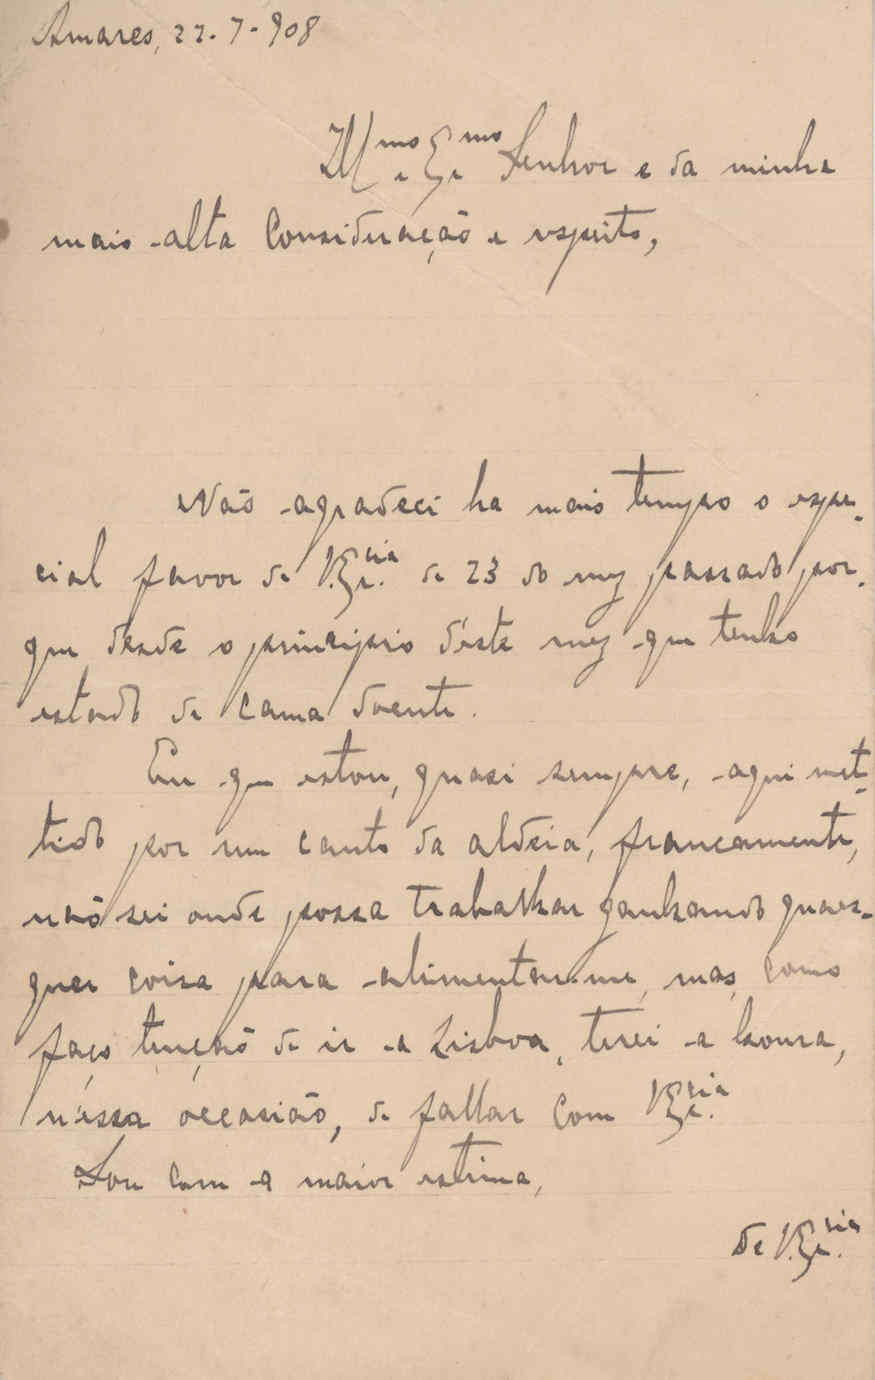 Amares, 22-7-908
Ill.mo e Ex.mo Senhor e da minha
mais alta Consideração e respeito,
Não agradeci ha mais tempo o espe-
cial favor de V. Ex.cia de 23 do mez passado por-
que desde o principio d'este mez que tenho
estado de cama doente.
Eu que estou, quasi sempre, aqui met-
tido por um canto da aldeia, francamente,
não sei onde possa trabalhar ganhando quaes-
quer coisa para alimentar-me, mas, como
faço tenção de ir a Lisboa, terei a honra,
n'essa occasião, de fallar com V. Ex.cia
Sou com a maior estima,
De V. Ex.cia